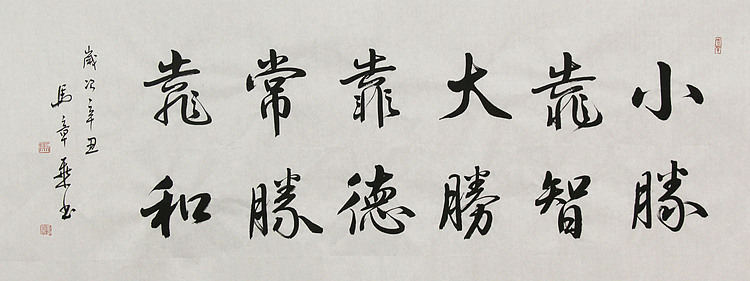 小勝
靠智
大勝
靠德
常勝
靠和
歲次辛丑
馬章乘書